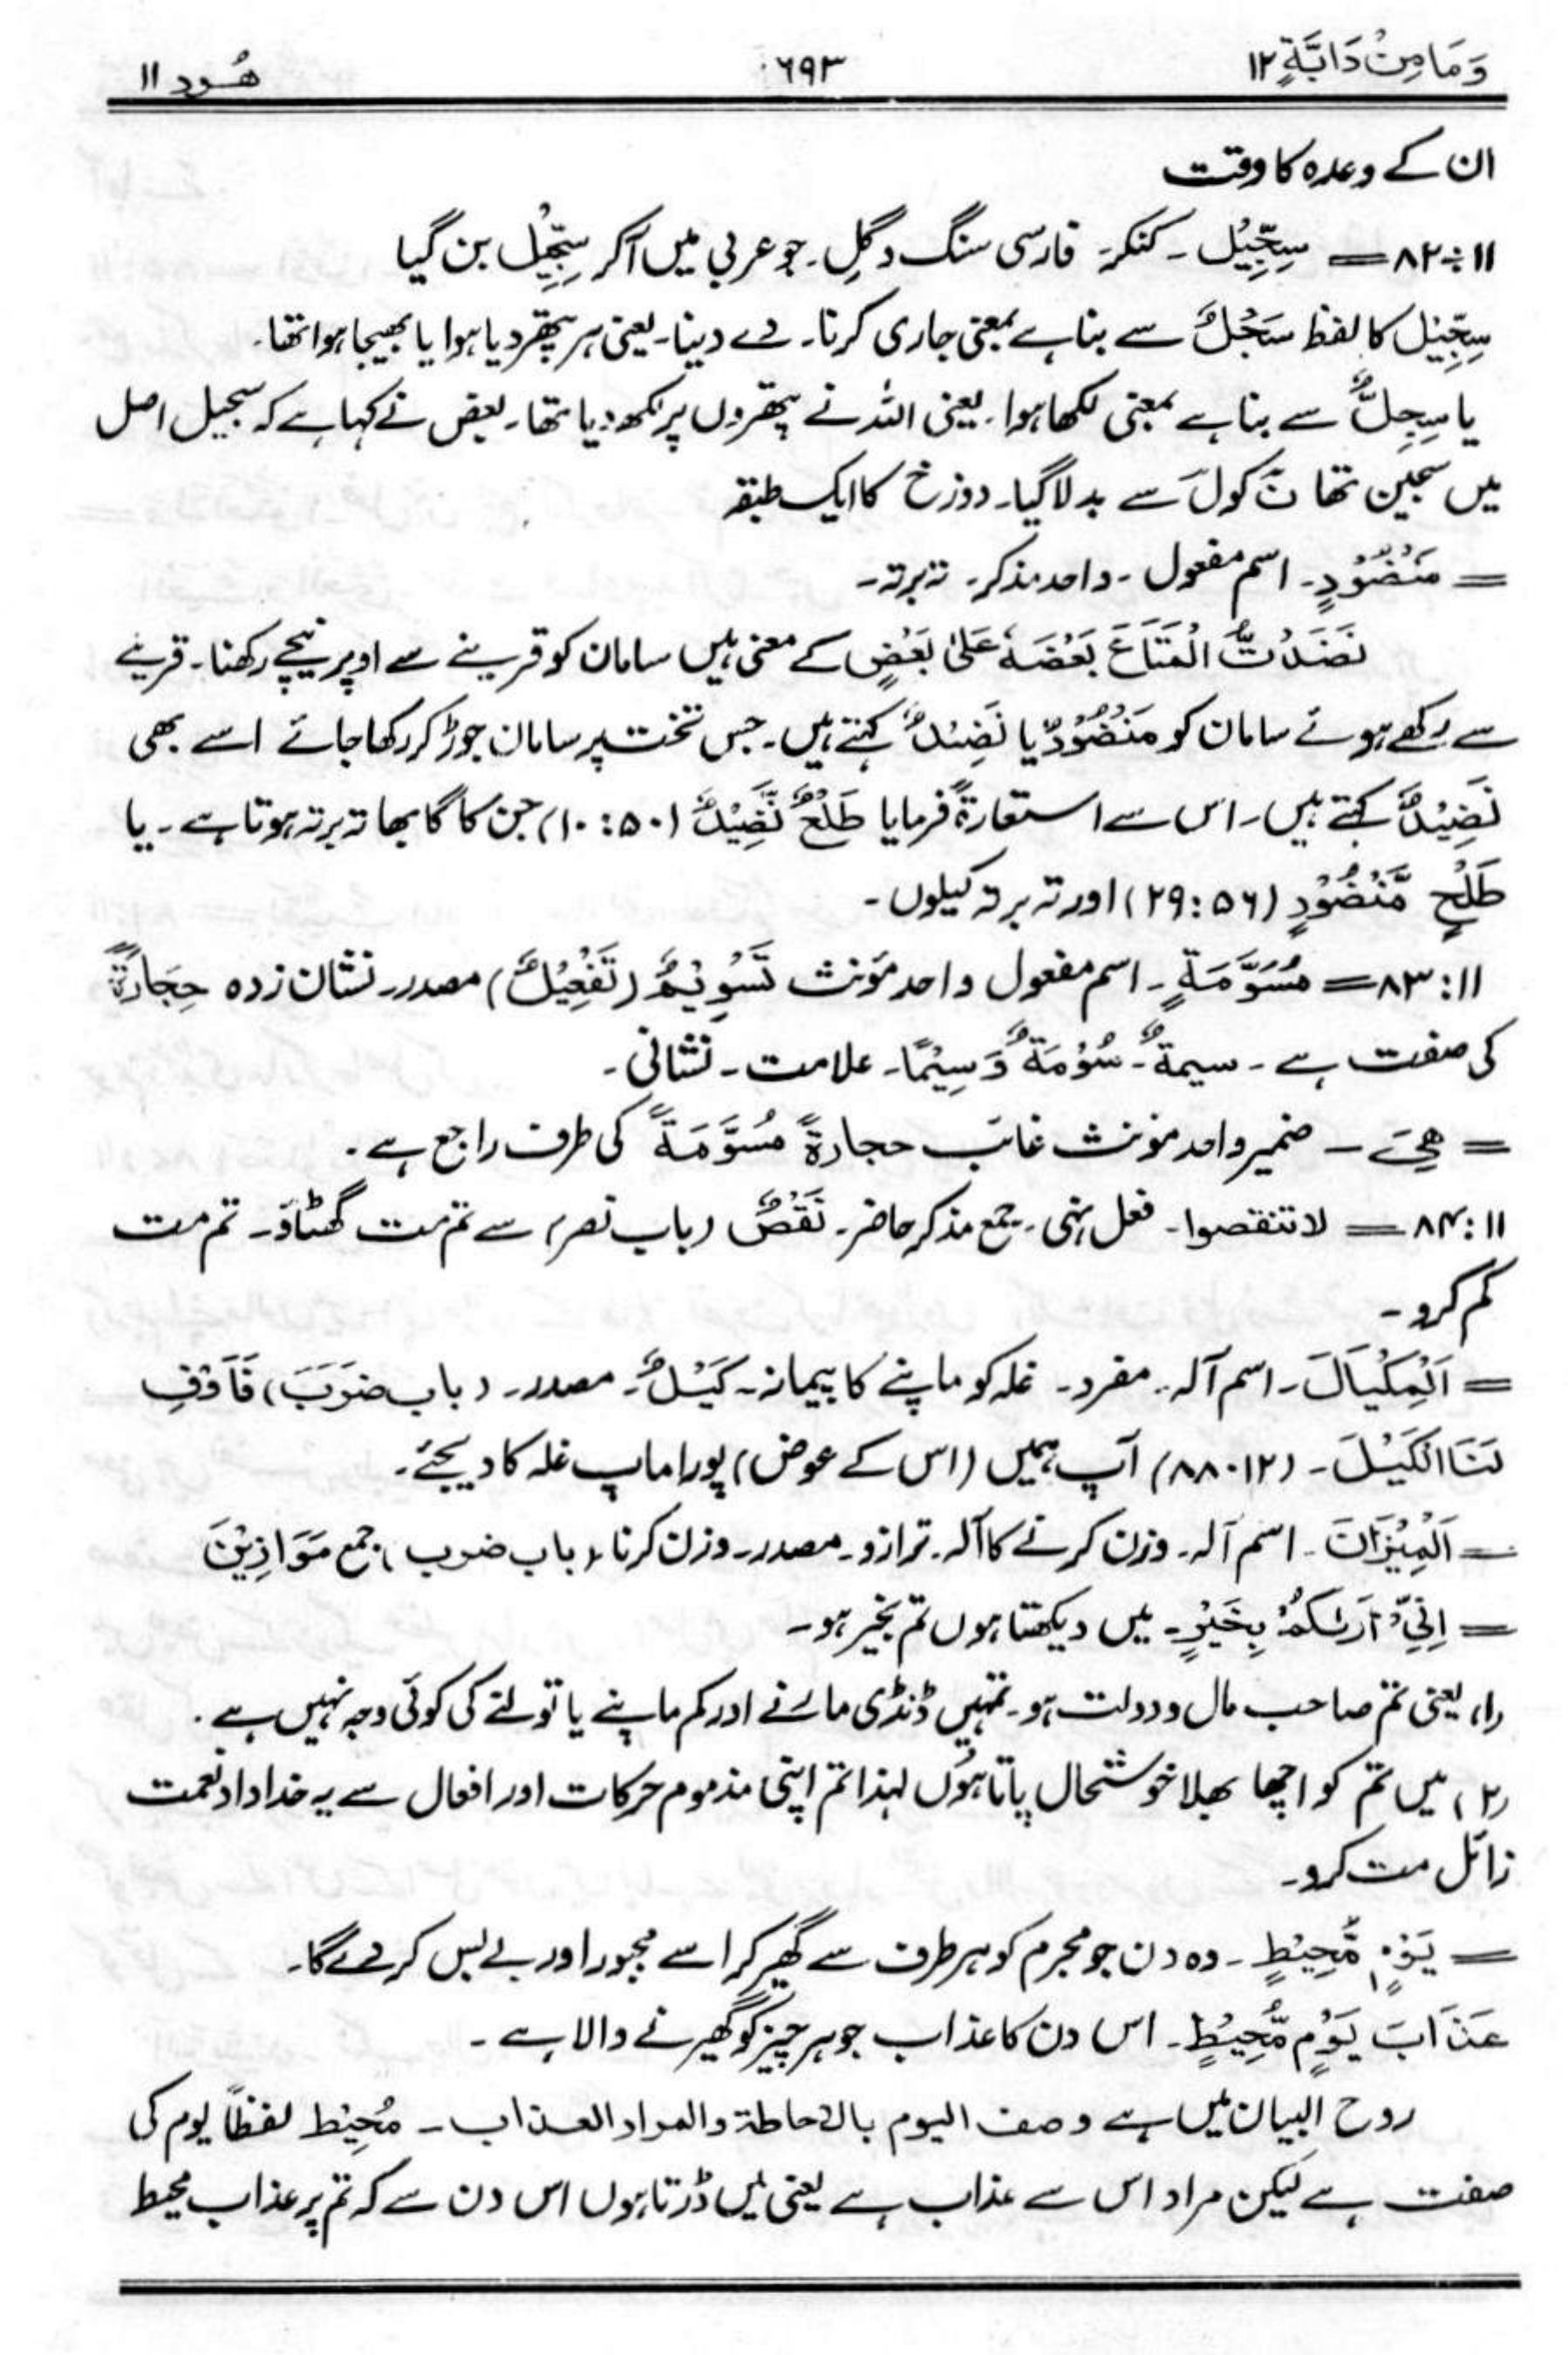 وَمَا مِنْ دَابَّةٍ ۱۲ ۶۹۳ ھُود ۱۱
ان کے وعدہ کا وقت
۱۱: ۸۲ = سِجِّیْل ۔ کنکر۔ فارسی سنگ و گِل۔ جو عربی میں آکر سِجِّیْل بن گیا
سِجِّیْل کا لفظ سَجْلٌ سے بنا ہے بمعنی جاری کرنا۔ دے دینا۔ یعنی ہر پتھر دیا ہوا یا بھیجا ہوا تھا۔
یا سِجِلٌّ سے بنا ہے بمعنی لکھا ہوا۔ یعنی اللہ نے پتھروں پر لکھ دیا تھا۔ بعض نے کہا ہے کہ سجیل اصل
میں سجین تھا نَ کو لَ سے بدلا گیا۔ دوزخ کا ایک طبقہ
= مَنْضُوْدٍ۔ اسم مفعول ۔ واحد مذکر۔ تہ برتہ۔
نَضَدْتُّ الْمَتَاعَ بَعْضَہٗ عَلیٰ بَعْضٍ کے معنی ہیں سامان کو قرینے سے اوپر نیچے رکھنا۔ قرینے
سے رکھے ہوئے سامان کو مَنْضُوْدٌ یا نَضِیْدٌ کہتے ہیں۔ جس تخت پر سامان جوڑ کر رکھا جائے اسے بھی
نَضِیْدٌ کہتے ہیں۔ اس سے استعارۃً فرمایا طَلْعٌ نَّضِیْدٌ (۵۰: ۱۰) جن کا گابھا تہ برتہ ہوتا ہے ۔ یا
طَلْحٍ مَّنْضُوْدٍ (۵۶: ۲۹) اور تہ برتہ کیلوں ۔
۱۱: ۸۳ = مُسَوَّمَةٍ ۔ اسم مفعول واحد مؤنث تَسْوِیْمٌ (تَفْعِیْلٌ) مصدر۔ نشان زدہ حِجَارَةً
کی صفت ہے ۔ سیمةٌ۔ سُوْمَةٌ وَسِیْمًا۔ علامت ۔ نشانی ۔
= ھِیَ ۔ ضمیر واحد مؤنث غائب حجارةً مُسَوَّمَةً کی طرف راجع ہے ۔
۱۱: ۸۴ = لا تنقصوا۔ فعل نہی۔ جمع مذکر حاضر۔ نَقْصٌ (باب نصر) سے تم مت گھٹاؤ۔ تم مت
کم کرو ۔
= اَلْمِکْیَالَ ۔ اسم آلہ۔ مفرد۔ غلہ کو ماپنے کا پیمانہ۔ کَیْلٌ۔ مصدر۔ (باب ضَرَبَ) فَاَوْفِ
لَنَا الْکَیْلَ ۔ (۱۲۔۸۸) آپ ہمیں (اس کے عوض) پورا ماپ غلہ کا دیجئے ۔
= اَلْمِیْزَانَ ۔ اسم آلہ۔ وزن کرنے کا آلہ۔ ترازو۔ مصدر۔ وزن کرنا (باب ضرب) جمع مَوَازِیْنَ
= اِنِّیْٓ اَرٰىکُمْ بِخَیْرٍ۔ میں دیکھتا ہوں تم بخیر ہو۔
(۱) یعنی تم صاحب مال و دولت ہو۔ تمہیں ڈنڈی مارنے اور کم ماپنے یا تولنے کی کوئی وجہ نہیں ہے ۔
(۲) میں تم کو اچھا بھلا خوشحال پاتا ہوں لہٰذا تم اپنی مذموم حرکات اور افعال سے یہ خداداد نعمت
زائل مت کرو۔
= یَوْمٍ مُّحِیْطٍ ۔ وہ دن جو مجرم کو ہر طرف سے گھیر کر اسے مجبور اور بے بس کر دے گا۔
عَذَابَ یَوْمٍ مُّحِیْطٍ۔ اس دن کا عذاب جو ہر چیز کو گھیرنے والا ہے ۔
روح البیان میں ہے وصف الیوم بالاحاطۃ والمراد العذاب ۔ مُحِیْط لفظاً یوم کی
صفت ہے لیکن مراد اس سے عذاب ہے یعنی میں ڈرتا ہوں اس دن سے کہ تم پر عذاب محیط